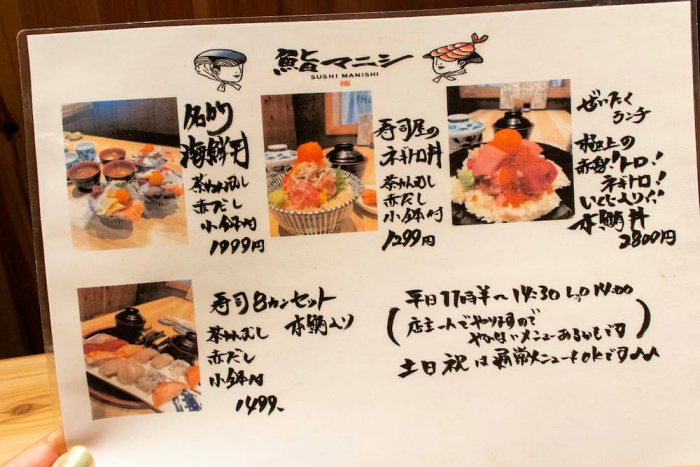 鮨マニシ
SUSHI MANISHI
名物
海鮮丼
茶わんむし
赤だし
小鉢付
1999円
寿司屋の
ネギトロ丼
茶わんむし
赤だし
小鉢付
1299円
ぜいたく
ランチ
極上の
赤身!トロ!
ネギトロ!
いくら入り!!
本鮪丼
2800円
寿司8カンセット
本鮪入り
茶わんむし
赤だし
小鉢付
1499、
平日11時半〜14:30 L.o 14:00
(店主一人でやりますので
やれないメニューあるかもです)
土日祝は通常メニューもokです♪♪